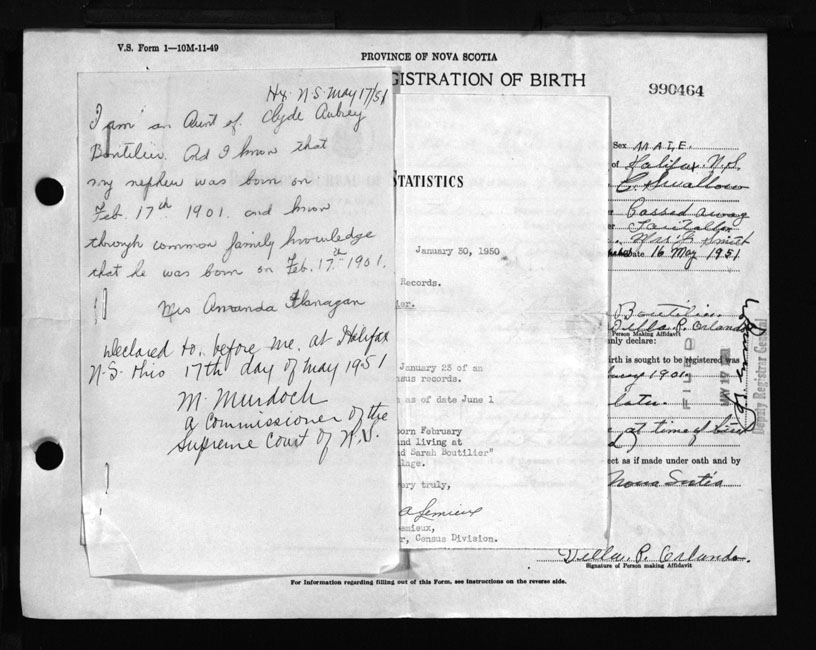 V.S. Form 1—10M-11-49
PROVINCE OF NOVA SCOTIA
GISTRATION OF BIRTH
990464
Hx. N.S. May 17/51
I am an Aunt of Clyde Aubrey
Boutilier. And I know that
my nephew was born on
Feb. 17th 1901. and know
through common family knowledge
that he was born on Feb. 17th 1901.
Mrs Amanda Flanagan
Declared to, before me, at Halifax
N.S. this 17th day of May 1951
M. Murdoch
a Commissioner of the
Supreme Court of N.S.
STATISTICS
January 30, 1950
Records.
ier.
January 23 of an
nsus records.
as of date June 1
orn February
and living at
d Sarah Boutilier"
llage.
ery truly,
A Lemieux
emieux,
r, Census Division.
Sex MALE.
of Halifax, N.S.
E. Swallow
Passed away
Date 16 May 1951
Boutilier
Villa P. Orlando
Person Making Affidavit
nly declare:
irth is sought to be registered was
1901
later.
at time of birth
ect as if made under oath and by
Nova Scotia
FILED
MAY 17 1951
Deputy Registrar General
Villa P. Orlando.
Signature of Person making Affidavit
For Information regarding filling out of this Form, see instructions on the reverse side.